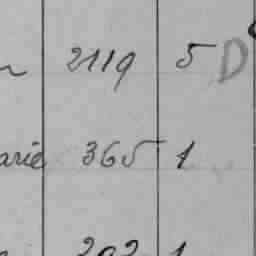 2119 5 D
arie 365 1